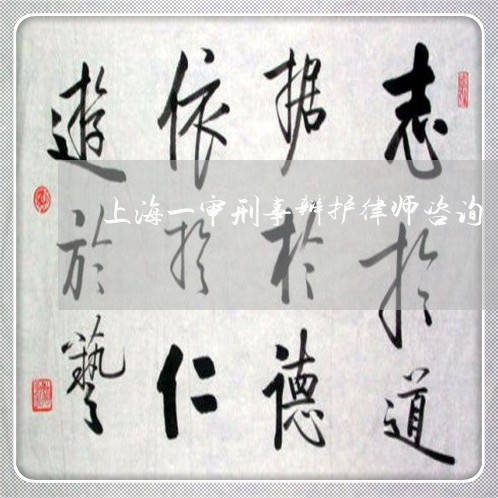 志於道
据於德
依於仁
遊於藝
上海一审刑事辩护律师咨询